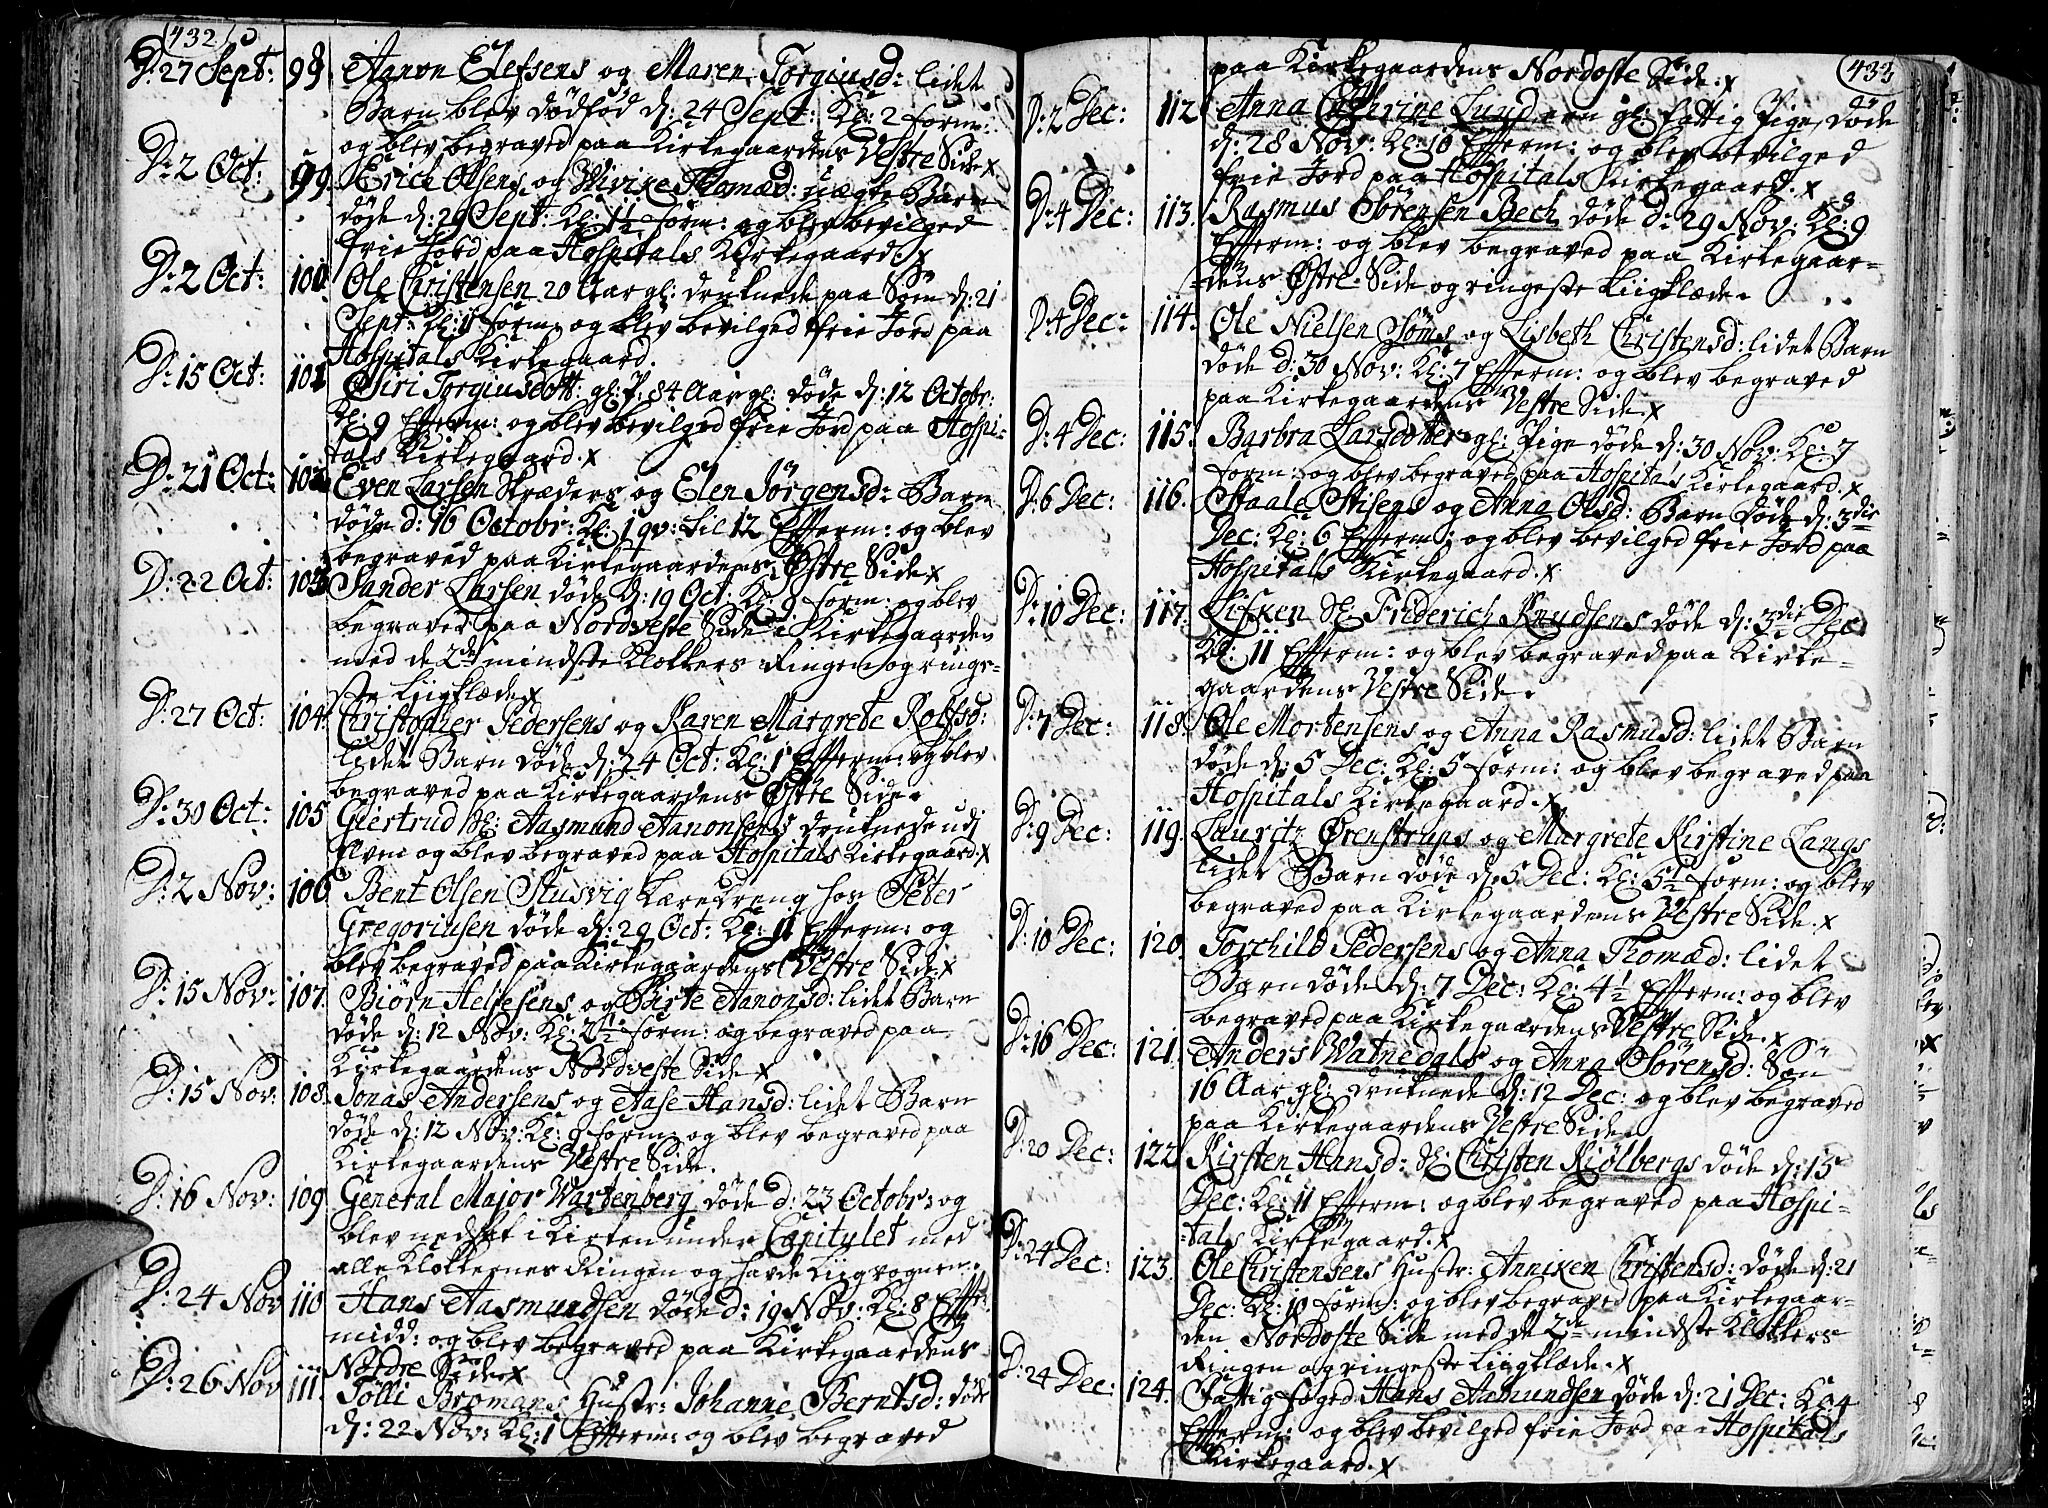 432
D: 27 Sept: 98 Aanon Elefsens og Maren Torgiusd: lidet
Barn blev dödfød d: 24 Sept: Kl: 2 form:
og blev begraved paa Kirkegaardens Vestre Side x
D: 2 Oct: 99. Erich Olsens og Wivike Thomæd: uægte Barn
døde d: 29 Sept: Kl: 1½ form: og blev bevilged
frie Jord paa Hospitals Kirkegaard x
D: 2 Oct: 100. Ole Christensen 20 Aar gl: druknede paa Søen d: 21
Sept: Kl: 11 form: og blev bevilged frie Jord paa
Hospitals Kirkegaard.
D: 15 Oct: 101 Siri Torgiusdott: gl: P: 84 Aar gl: døde d: 12 Octobr:
Kl: 9 Efferm: og blev bevilged frie Jord paa Hospi-
tals Kirkegaard. x
D: 21 Oct: 102 Even Larsen Skræders og Elen Jörgensd: Barn
døde d: 16 Octobr: Kl: 1 qv: til 12 Efferm: og blev
begraved paa Kirkegaardens Østre Side x
D: 22 Oct: 103 Sander Larsen døde d: 19 Oct: Kl: 9 form: og blev
begraved paa Nordveste Side i Kirkegaarden
med de 2de mindste Klokkers Ringen og ringe-
ste Liigklæde x
D: 27 Oct: 104. Christopher Pedersens og Karen Margrete Rolfsd:
lidet Barn døde d: 24 Oct: Kl: 1 Efferm: og blev
begraved paa Kirkegaardens Østre Side.
D: 30 Oct: 105 Giertrud Sl: Aasmund Aanonsens druknede udi
Elven og blev begraved paa Hospitals Kirkegaard. x
D: 2 Nov: 106 Bent Olsen Stusvig Læredreng hos Peter
Gregoriusen døde d: 29 Oct: Kl: 11 Efferm: og
blev begraved paa Kirkegaardens Vestre Side x
D: 15 Nov: 107. Biørn Heljesens og Birte Aanonsd: lidet Barn
døde d: 12 Nov: Kl: 2½ form: og begraved paa
Kirkegaardens Nordveste Side x
D: 15 Nov: 108. Jonas Andersens og Aase Hansd: lidet Barn
døde d: 12 Nov: Kl: 9 form: og blev begraved paa
Kirkegaardens Vestre Side.
D: 16 Nov: 109. General Major Wartenberg døde d: 23 Octobr: og
blev nedsat i Kirken under Capitulet med
alle Klokkernes Ringen og havde Liigvognen.
D: 24 Nov 110 Hans Aasmundsen døde d: 19 Nov: Kl: 8 Effter
midd: og blev begraved paa Kirkegaardens
Nordre Side x
D: 26 Nov 111. Tölli Bromans Hustr: Johanne Berntsd: døde
d: 22 Nov: Kl: 1 Efferm: og blev begraved
433
paa Kirkegaardens Nordoste Side. x
D: 2 Dec: 112. Anna Cathrine Lund een gl: fattig Pige, døde
d: 28 Nov: Kl: 10 Efferm: og blev bevilged
frie Jord paa Hospitals Kirkegaard. x
D: 4 Dec: 113. Rasmus Sörensen Bech døde d: 29 Nov: Kl: 9
Efferm: og blev begraved paa Kirkegaar-
dens Østre Side og ringeste Liigklæde.
D: 4 Dec: 114. Ole Nielsen Søms og Lisbeth Christensd: lidet Barn
døde d: 30 Nov: Kl: 7 Efferm: og blev begraved
paa Kirkegaardens Vestre Side x
D: 4 Dec: 115. Barbra Larsdotter gl: Pige døde d: 30 Nov: Kl: 7
form: og blev begraved paa Hospitals Kirkegaard. x
D: 6 Dec: 116. Staale Stisens og Anna Olsd: Barn døde d: 3die
Dec: Kl: 6 Efferm: og blev bevilged frie Jord paa
Hospitals Kirkegaard. x
D: 10 Dec: 117. Lisken Sl: Friderich Knudsens døde d: 3die Dec:
Kl: 11 Efferm: og blev begraved paa Kirke-
gaardens Vestre Side.
D: 7 Dec: 118. Ole Mortensens og Anna Rasmusd: lidet Barn
døde d: 5 Dec: Kl: 5 form: og blev begraved paa
Hospitals Kirkegaard. x
D: 9 Dec: 119. Lauritz Ørenstrups og Margrete Kirstine Langs
lidet Barn døde d: 5 Dec: Kl: 5½ form: og blev
begraved paa Kirkegaardens Vestre Side. x
D: 10 Dec: 120. Torchild Pedersens og Anna Thomæd: lidet
Barn døde d: 7 Dec: Kl: 4½ Efferm: og blev
begraved paa Kirkegaardens Vestre Side. x
D: 16 Dec: 121. Anders Watnedals og Anna Sörensd: Søn
16 Aar gl: druknede d: 12 Dec: og blev begraved
paa Kirkegaardens Vestre Side.
D: 20 Dec: 122 Kirsten Hansd: Sl: Christen Kiølbergs døde d: 15
Dec: Kl: 11 Efferm: og blev begraved paa Hospi-
tals Kirkegaard. x
D: 24 Dec: 123. Ole Christensens Hustr: Anniken Christensd: døde d: 21
Dec: Kl: 10 form: og blev begraved paa Kirkegaar-
den Nordoste Side med de 2de mindste Klokkers
Ringen og ringeste Liigklæde. x
D: 24 Dec: 124. Fattig Foged Hans Aamundsen døde d: 21 Dec: Kl: 4
Efferm: og blev bevilged frie Jord paa Hospitals
Kirkegaard. x